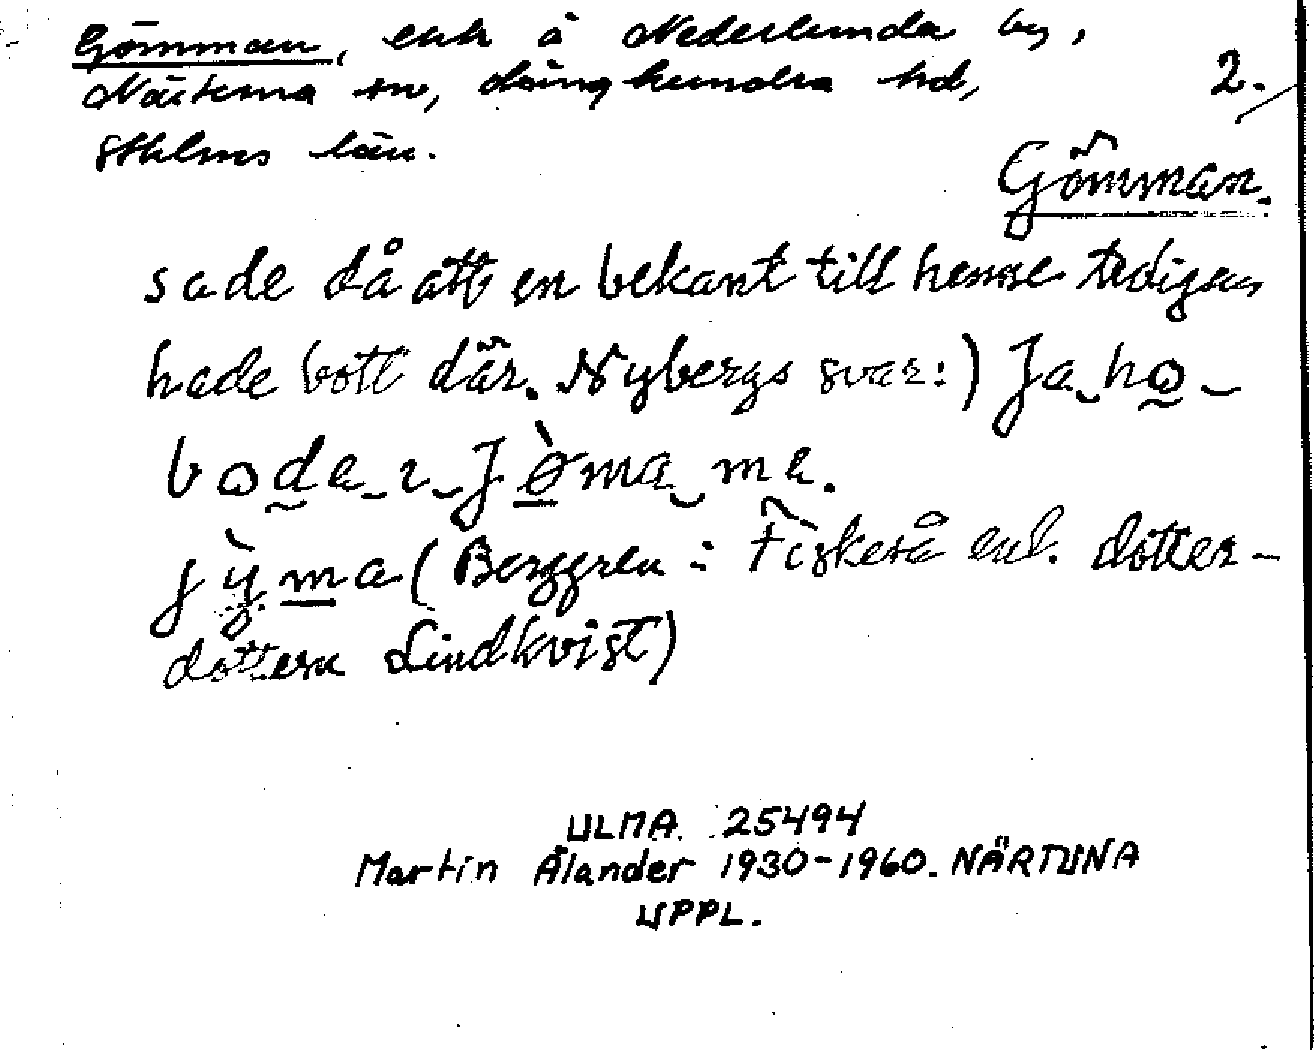 Gömman, enh å Nederlunda by,
Närtuna sn, Långhundra hd,
Sthlms län.
2.
Gömman.
sade då att en bekant till henne tidigare
hade bott där. Nybergs svar:) Ja ho
boda i jömа ma.
jỳma (Berggren : Fiskeså enl. dotter-
dottern Lindkvist)
ULMA 25494
Martin Ålander 1930-1960. NÄRTUNA
UPPL.